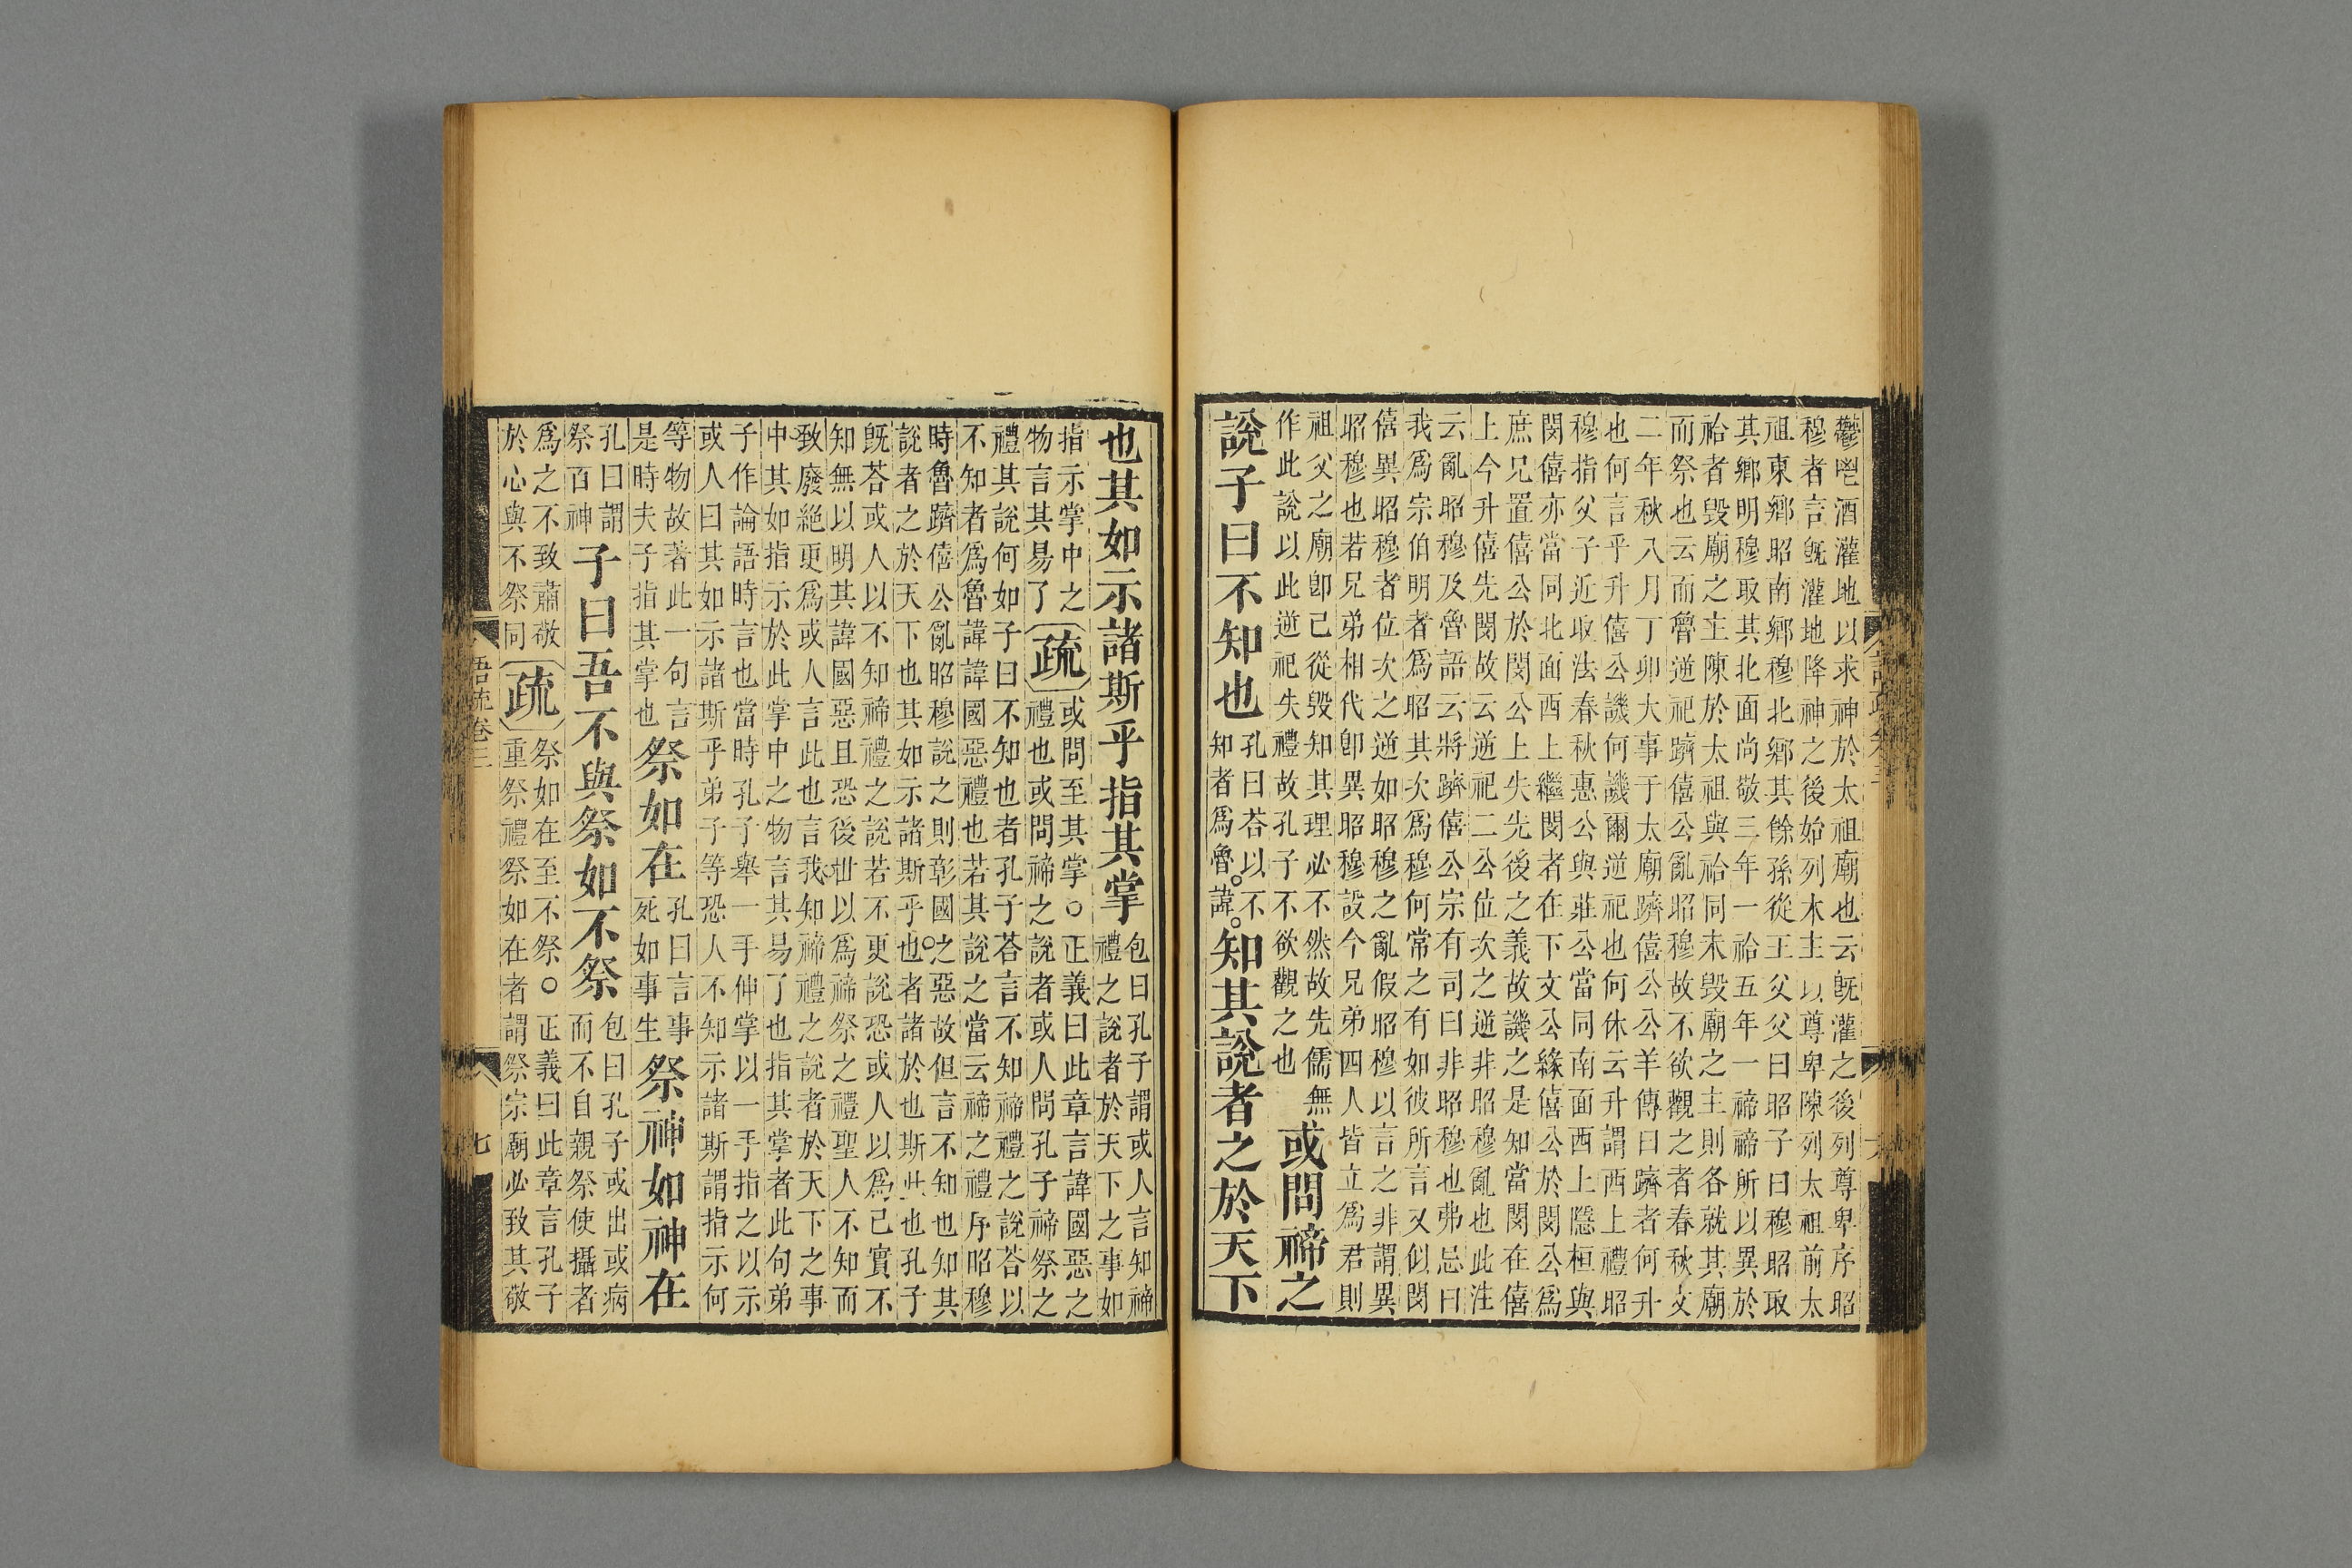 鬱鬯酒灌地以求神於太祖廟也云既灌之後列尊卑序昭
穆者言既灌地降神之後始列木主以尊卑陳列太祖前太
祖東鄉昭南鄉穆北鄉其餘孫從王父父曰昭子曰穆昭取
其鄉明穆取其北面尚敬三年一祫五年一禘禘所以異於
祫者毀廟之主陳於太祖與祫同未毀廟之主則各就其廟
而祭也云而魯逆祀躋僖公亂昭穆故不欲觀之者春秋文
二年秋八月丁卯大事于太廟躋僖公公羊傳曰躋者何升
也何言乎升僖公譏何譏爾逆祀也何休云升謂西上禮昭
穆指父子近取法春秋惠公與莊公當同南面西上隱桓與
閔僖亦當同北面西上繼閔者在下文公緣僖公於閔公爲
庶兄置僖公於閔公上失先後之義故譏之是知當閔在僖
上今升僖先閔故云逆祀二公位次之逆非昭穆亂也此注
云亂昭穆及魯語云將躋僖公宗有司曰非昭穆也弗忌曰
我爲宗伯明者爲昭其次爲穆何常之有如彼所言又似閔
僖異昭穆者位次之逆如昭穆之亂假昭穆以言之非謂異
昭穆也若兄弟相代卽異昭穆設今兄弟四人皆立爲君則
祖父之廟卽已從毀知其理必不然故先儒無
作此說以此逆祀失禮故孔子不欲觀之也
或問禘之
說子曰不知也
孔曰荅以不
知者爲魯諱
知其說者之於天下
也其如示諸斯乎指其掌
包曰孔子謂或人言知禘
禮之說者於天下之事如
指示掌中之
物言其易了
疏
或問至其掌○正義曰此章言諱國惡之
禮也或問禘之說者或人問孔子禘祭之
禮其說何如子曰不知也者孔子荅言不知禘禮之說荅以
不知者爲魯諱諱國惡禮也若其說之當云禘之禮序昭穆
時魯躋僖公亂昭穆說之則彰國之惡故但言不知也知其
說者之於天下也其如示諸斯乎也者諸於也斯此也孔子
既荅或人以不知禘禮之說若不更說恐或人以爲己實不
知無以明其諱國惡且恐後世以爲禘祭之禮聖人不知而
致廢絕更爲或人言此也言我知禘禮之說者於天下之事
中其如指示於此掌中之物言其易了也指其掌者此句弟
子作論語時言也當時孔子舉一手伸掌以一手指之以示
或人曰其如示諸斯乎弟子等恐人不知示諸斯謂指示何
等物故著此一句言
是時夫子指其掌也
祭如在
孔曰言事
死如事生
祭神如神在
孔曰謂
祭百神
子曰吾不與祭如不祭
包曰孔子或出或病
而不自親祭使攝者
爲之不致肅敬
於心與不祭同
疏
祭如在至不祭○正義曰此章言孔子
重祭禮祭如在者謂祭宗廟必致其敬
七